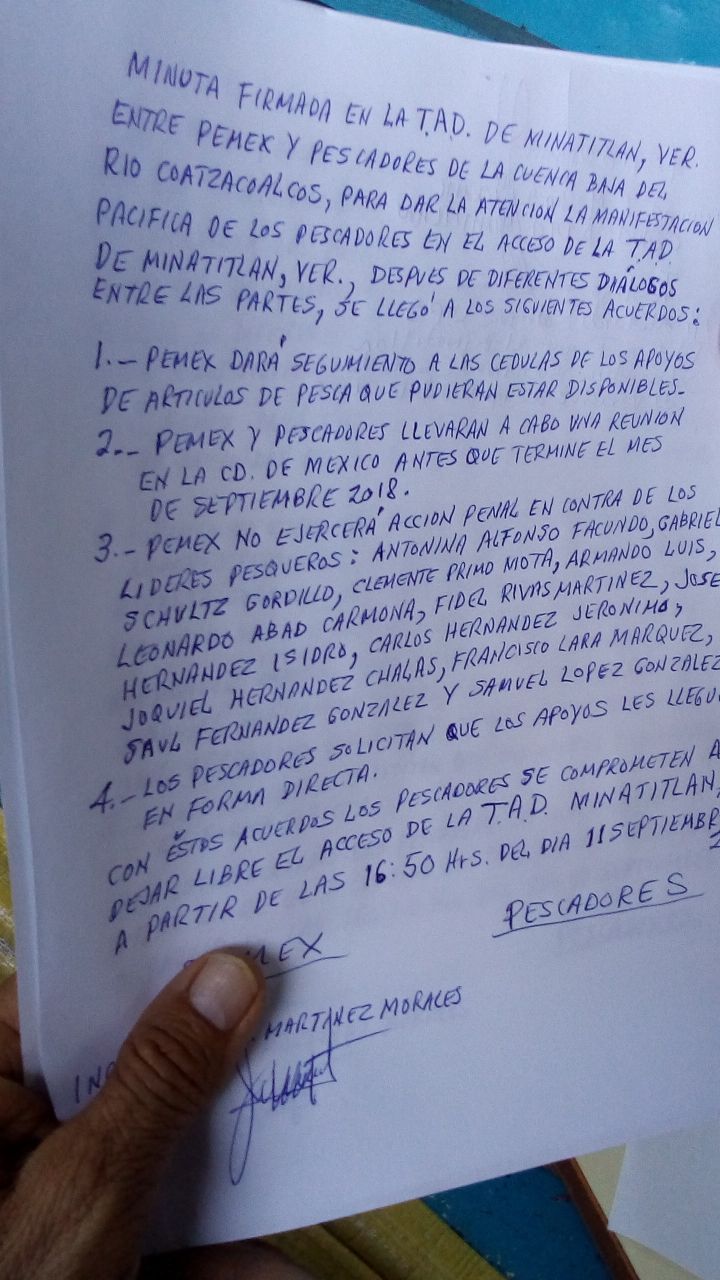 MINUTA FIRMADA EN LA T.A.D. DE MINATITLAN, VER.
ENTRE PEMEX Y PESCADORES DE LA CUENCA BAJA DEL
RIO COATZACOALCOS, PARA DAR LA ATENCION LA MANIFESTACION
PACIFICA DE LOS PESCADORES EN EL ACCESO DE LA T.A.D.
DE MINATITLAN, VER., DESPUES DE DIFERENTES DIÁLOGOS
ENTRE LAS PARTES, SE LLEGÓ A LOS SIGUIENTES ACUERDOS:
1.- PEMEX DARÁ SEGUIMIENTO A LAS CEDULAS DE LOS APOYOS
DE ARTICULOS DE PESCA QUE PUDIERAN ESTAR DISPONIBLES.
2.- PEMEX Y PESCADORES LLEVARAN A CABO UNA REUNION
EN LA CD. DE MEXICO ANTES QUE TERMINE EL MES
DE SEPTIEMBRE 2018.
3.- PEMEX NO EJERCERÁ ACCION PENAL EN CONTRA DE LOS
LIDERES PESQUEROS: ANTONINA ALFONSO FACUNDO, GABRIEL
SCHULTZ GORDILLO, CLEMENTE PRIMO MOTA, ARMANDO LUIS,
LEONARDO ABAD CARMONA, FIDEL RIVAS MARTINEZ, JOSE
HERNANDEZ ISIDRO, CARLOS HERNANDEZ JERONIMO,
JOQUIEL HERNANDEZ CHALAS, FRANCISCO LARA MARQUEZ,
SAUL FERNANDEZ GONZALEZ Y SAMUEL LOPEZ GONZALEZ
4.- LOS PESCADORES SOLICITAN QUE LOS APOYOS LES LLEGU
EN FORMA DIRECTA.
CON ÉSTOS ACUERDOS LOS PESCADORES SE COMPROMETEN A
DEJAR LIBRE EL ACCESO DE LA T.A.D. MINATITLAN,
A PARTIR DE LAS 16:50 Hrs. DEL DIA 11 SEPTIEMBR
PESCADORES
MARTINEZ MORALES